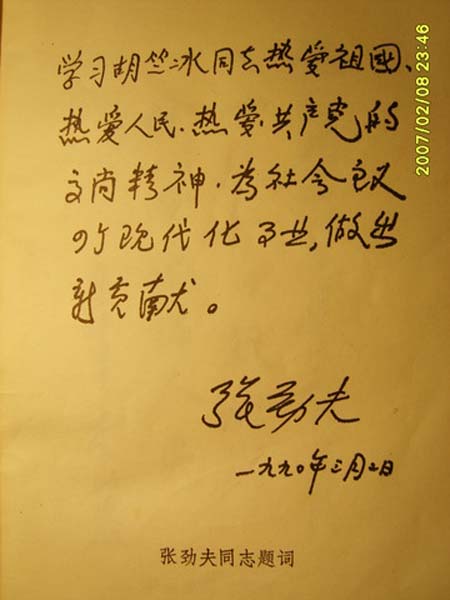 学习胡竺冰同志热爱祖国、
热爱人民、热爱共产党的
高尚精神,为社会主义
四个现代化事业,做出
新贡献。
张劲夫
一九九〇年三月二日
张劲夫同志题词
2007/02/08 23:46